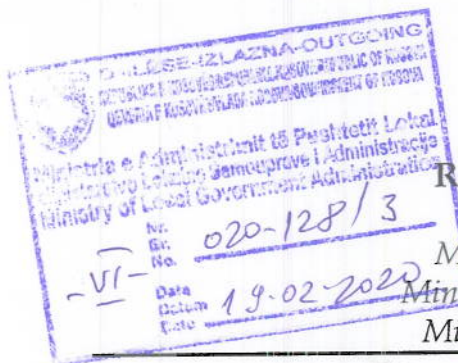 DALËSE-IZLAZNA-OUTGOING
Ministria e Administrimit të Pushtetit Lokal
Ministarstvo Lokalne Samouprave i Administracije
Ministry of Local Government Administration
R
Nr.
Br.
No. 020-128/3
-VI-
M
Data
Datum
Date 19-02-2020
Min
Mi